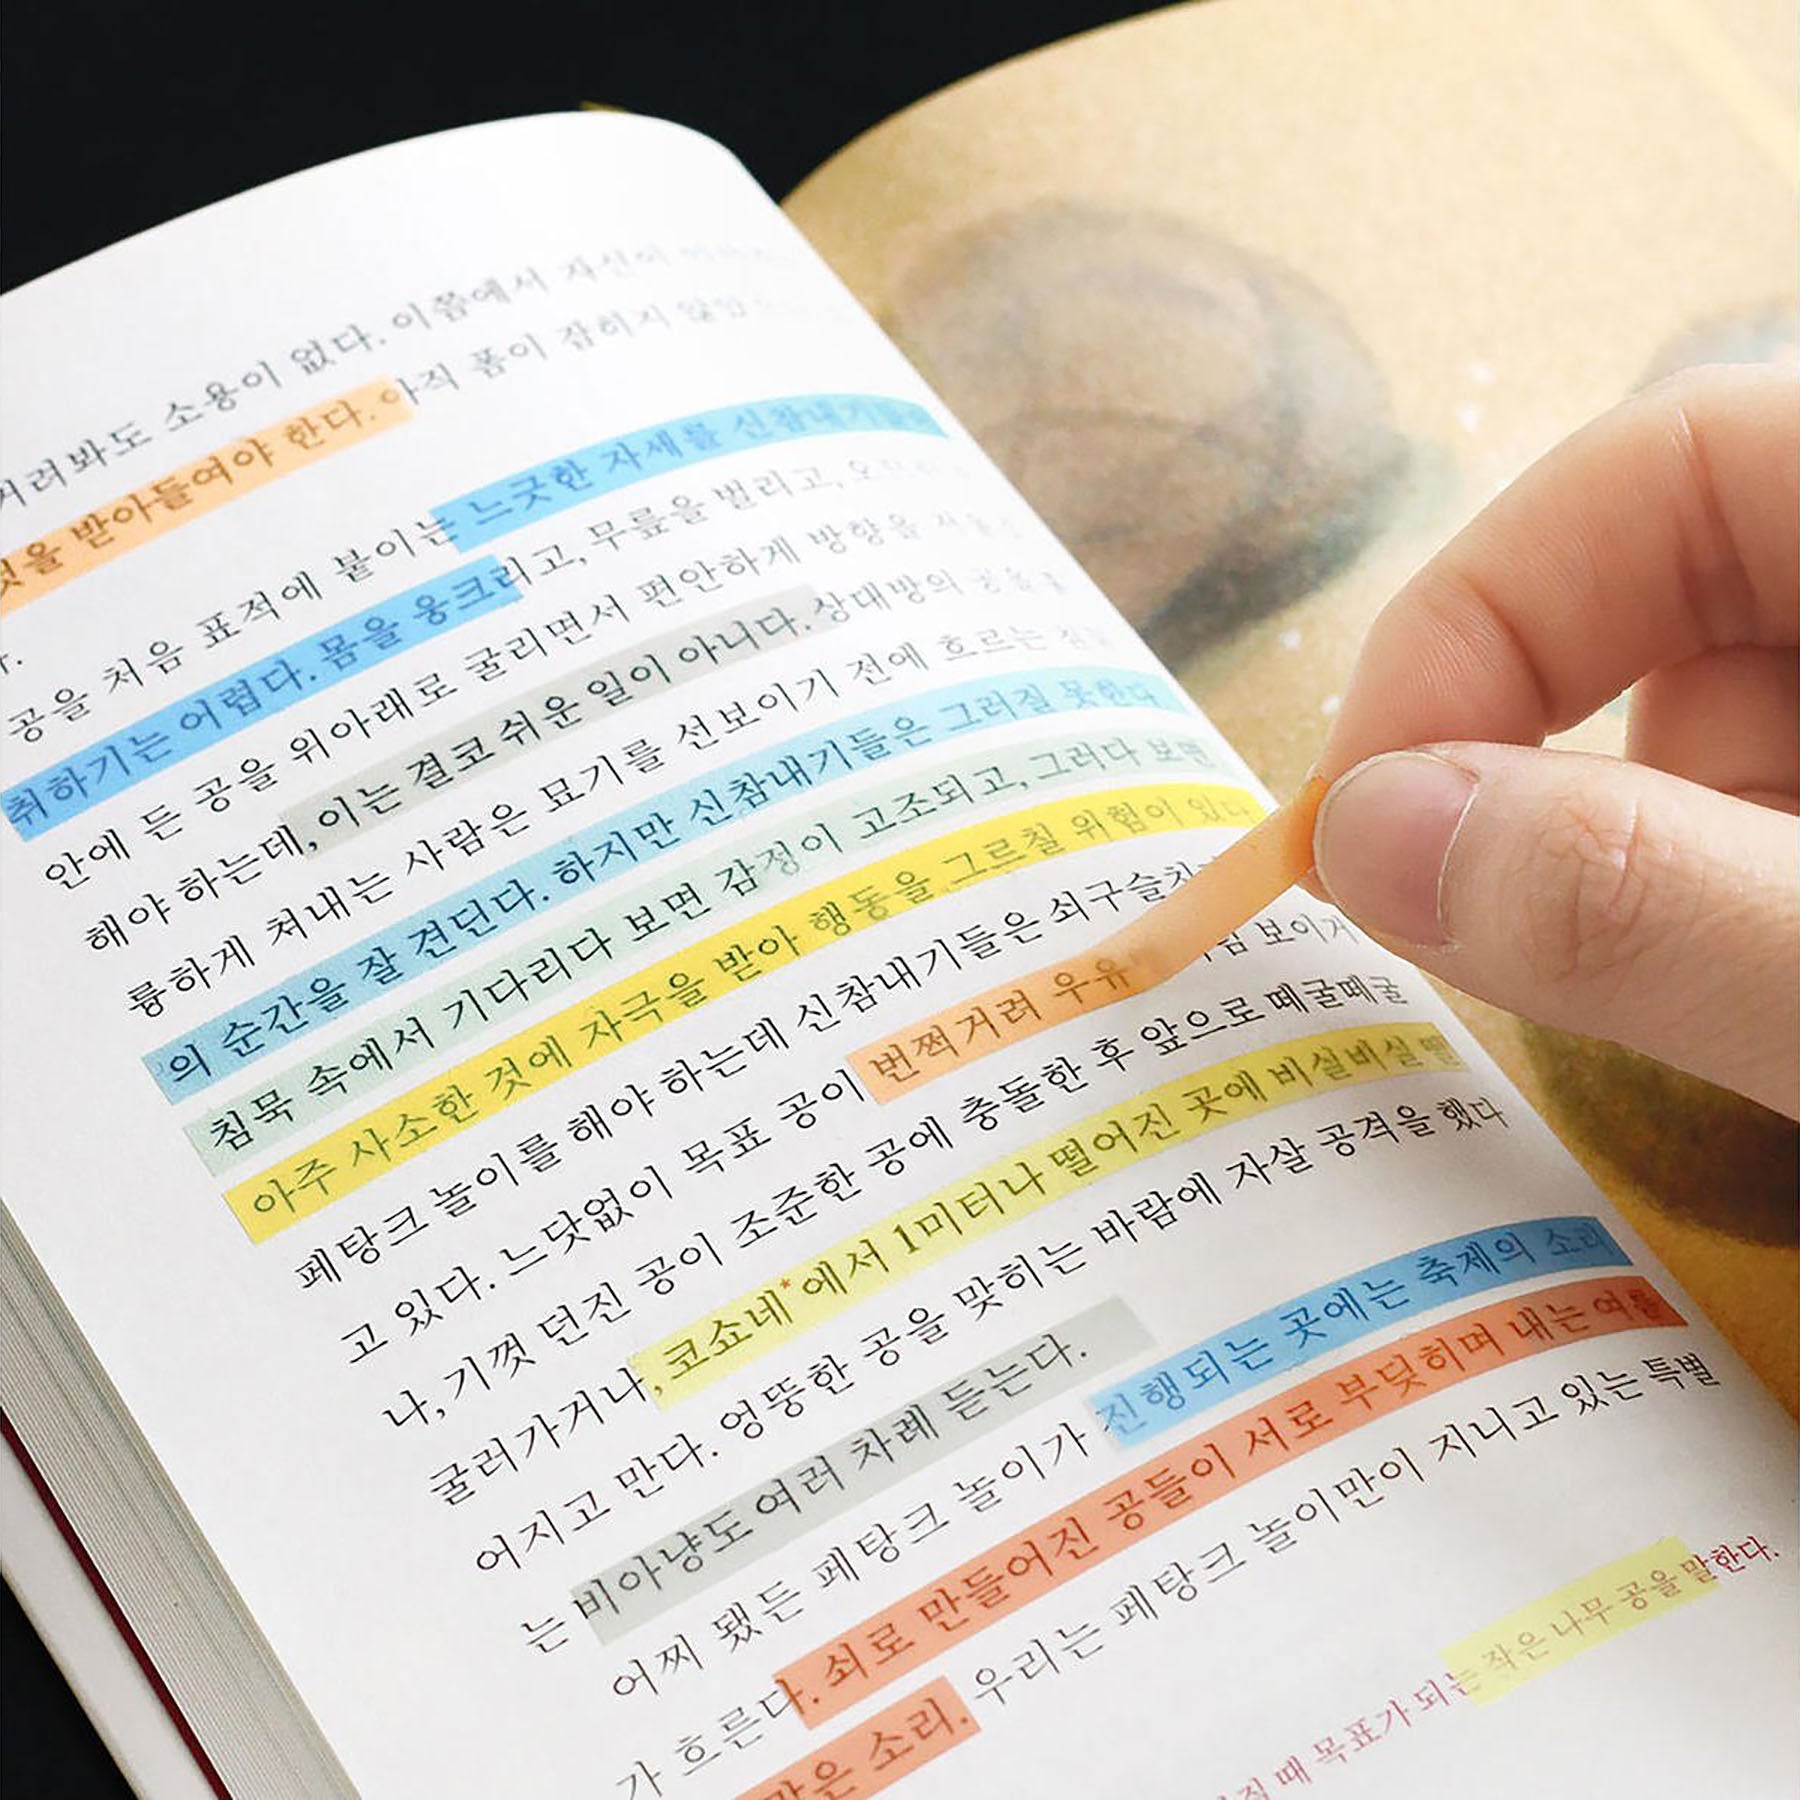 려봐도 소용이 없다. 이쯤에서 자신이
것을 받아들여야 한다. 아직 폼이 잡히지 않았
다.
공을 처음 표적에 붙이는 느긋한 자세를 신참내기들이
취하기는 어렵다. 몸을 웅크리고, 무릎을 벌리고,
안에 든 공을 위아래로 굴리면서 편안하게 방향을
해야 하는데, 이는 결코 쉬운 일이 아니다. 상대방의 공을
륭하게 쳐내는 사람은 묘기를 선보이기 전에 흐르는 침묵
의 순간을 잘 견딘다. 하지만 신참내기들은 그러질 못한다.
침묵 속에서 기다리다 보면 감정이 고조되고, 그러다 보면
아주 사소한 것에 자극을 받아 행동을 그르칠 위험이 있다
페탕크 놀이를 해야 하는데 신참내기들은 쇠구슬치기
고 있다. 느닷없이 목표 공이 번쩍거려 우유 보이거
나, 기껏 던진 공이 조준한 공에 충돌한 후 앞으로 떼굴떼굴
굴러가거나, 코쇼네*에서 1미터나 떨어진 곳에 비실비실 떨
어지고 만다. 엉뚱한 공을 맞히는 바람에 자살 공격을 했다
는 비아냥도 여러 차례 듣는다.
어찌 됐든 페탕크 놀이가 진행되는 곳에는 축제의 소리
가 흐른다. 쇠로 만들어진 공들이 서로 부딪히며 내는 여름
같은 소리. 우리는 페탕크 놀이만이 지니고 있는 특별
때 목표가 되는 작은 나무 공을 말한다.